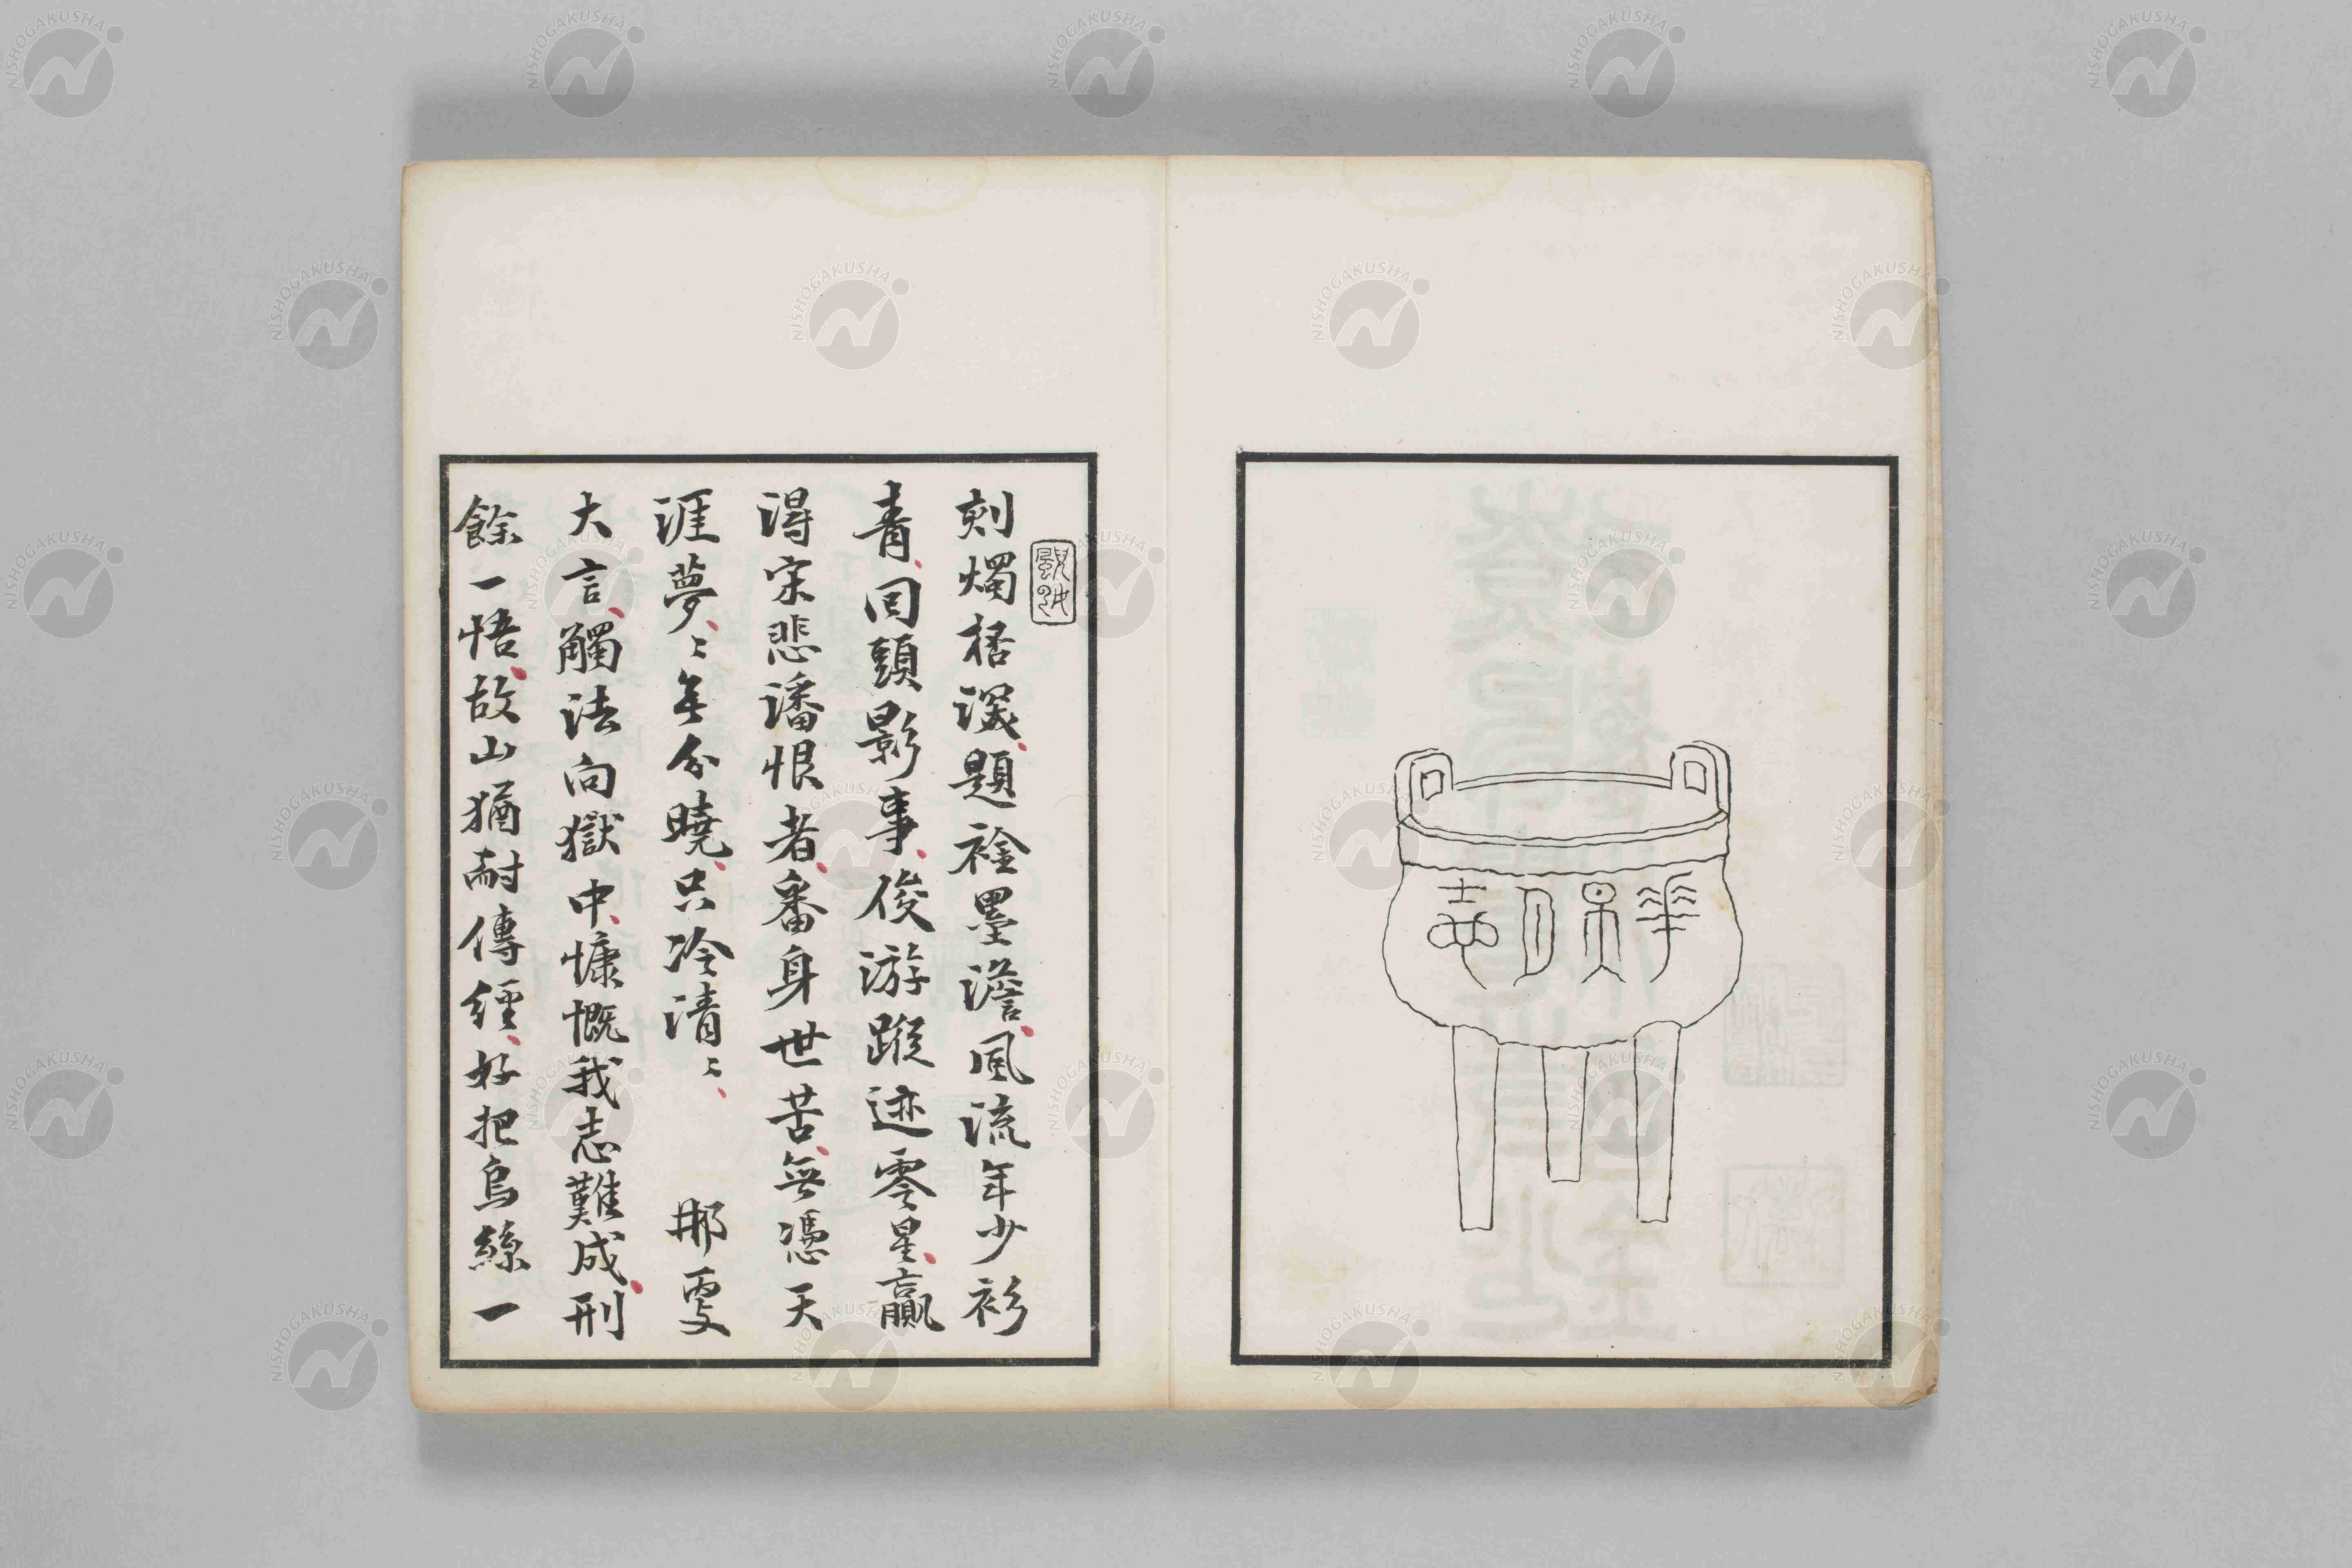 華月志
刻燭栝譔、題襟墨澹、風流年少衫
青、回頭影事、俊游蹤迹零星、贏
得宋悲潘恨者、番身世苦、無憑天
涯夢、〻無分曉、只冷清〻、那更
大言、觸法向獄中、慷慨我志難成、刑
餘一悟、故山猶耐傳經、好把烏絲一
NISHOGAKUSHA